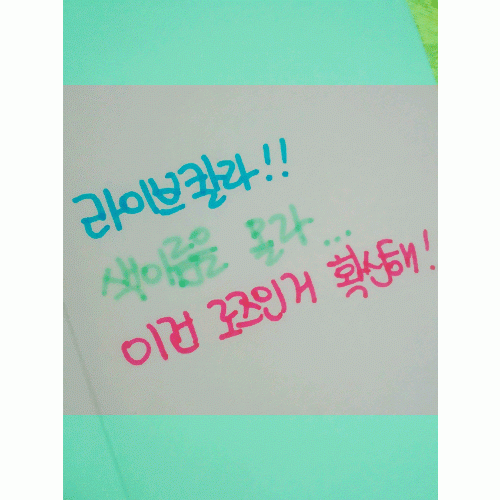 라이브칼라!!
색이름을 몰라...
이건 로즈인거 확실해!